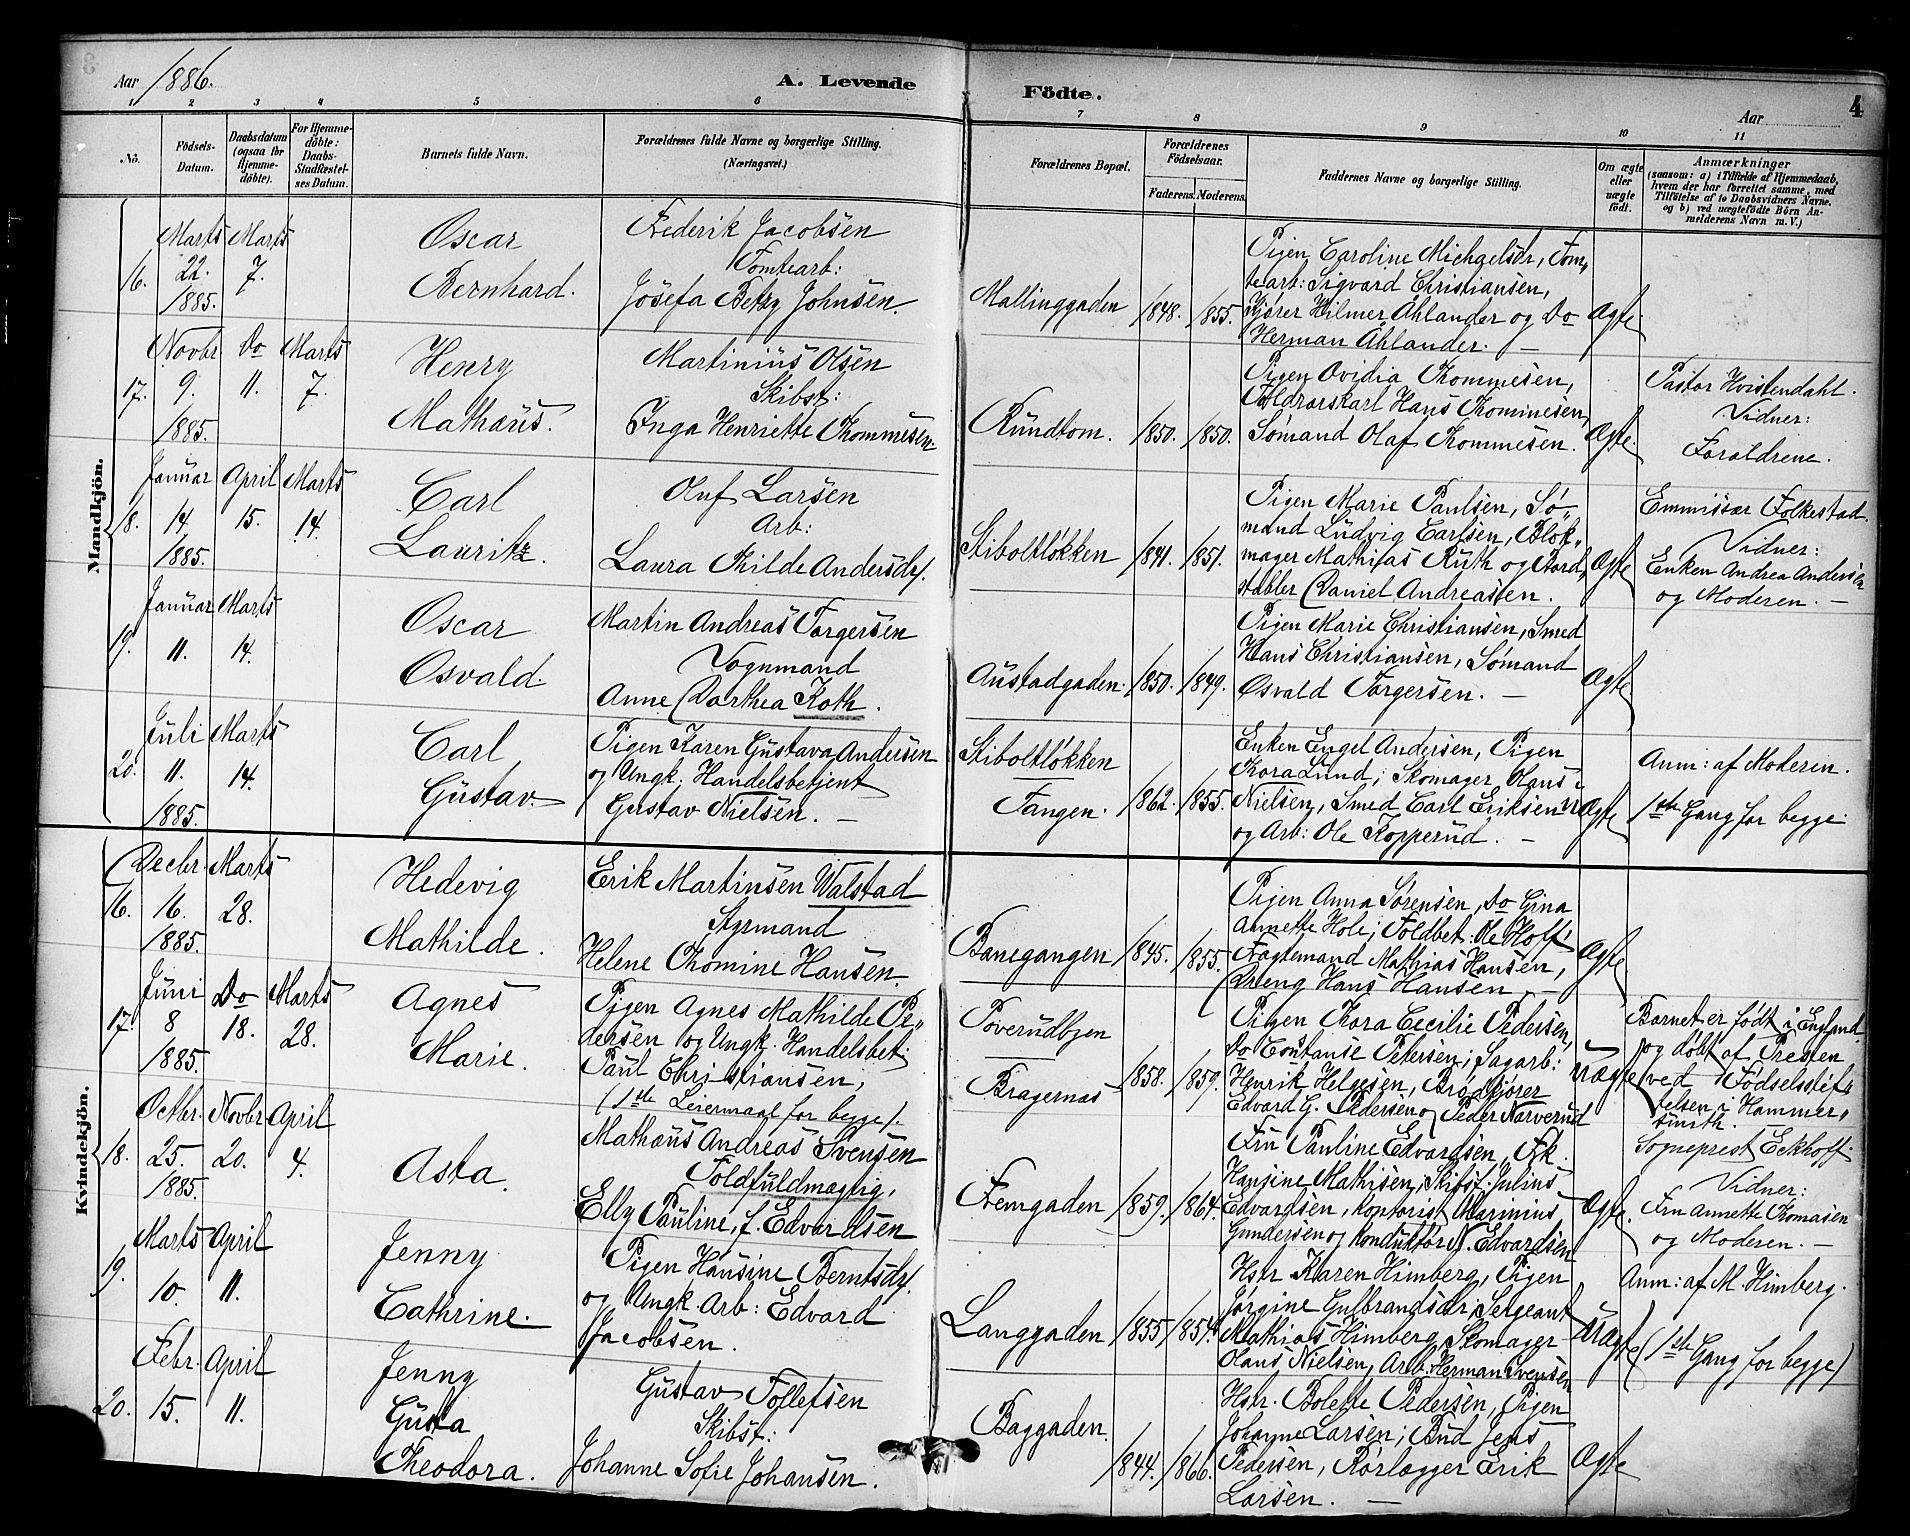 Aar 1886. A. Levende Födte. Aar 4
1 2 3 4 5 6 7 8 9 10 11
No. Födsels-Datum. Daabsdatum (ogsaa for Hjemme-döbte). For Hjemme-döbte: Daabs-Stadfæstel-ses Datum. Barnets fulde Navn. Forældrenes fulde Navne og borgerlige Stilling. (Næringsvei.) Forældrenes Bopæl. Forældrenes Födselsaar. Faderens. Moderens. Faddernes Navne og borgerlige Stilling. Om ægte eller uægte födt. Anmærkninger (saasom: a) i Tilfælde af Hjemmedaab, hvem der har forrettet samme, med Tilföielse af to Daabsvidners Navne, og b) ved uægtefödte Börn An-melderens Navn m.V.)
Mandkjön.
16. Marts 22. 1885. Marts 7. Oscar Bernhard.
Frederik Jacobsen
Tomtearb:
Josefa Betzy Johnsen.
Mallinggaden 1848. 1855.
Pigen Caroline Michaelsdr, Tom,
tearb: Sigvard Christiansen,
Kjører Hilmer Åhlander og Do
Herman Åhlander. —
Ægte.
17. Novbr 9. 1885. Do 11. Marts 7. Henry Mathæus.
Martinius Olsen
Skibst:
Inga Henriette Thommesen
Rundtom. 1850. 1850.
Pigen Ovidia Thommesen,
Toldrorskarl Hans Thommesen,
Sømand Olaf Thommesen.
Ægte.
Pastor Hvistendahl.
Vidner:
Forældrene.
18. Januar 14. 1885. April 15. Marts 14. Carl Lauritz.
Oluf Larsen
Arb:
Laura Thilde Andersdr.
Stiboltløkken 1841. 1851.
Pigen Marie Paulsen, Sø„
mand Ludvig Carlsen, Blok„
mager Mathias Ruth og Bord,
stabler Daniel Andreassen.
Ægte
Emmissær Folkestad.
Vidner:
Enken Andrea Andersen
og Moderen. —
19. Januar 11. Marts 14. Oscar Osvald.
Martin Andreas Torgersen
Vognmand
Anne Dorthea Koth.
Austadgaden. 1850. 1849.
Pigen Marie Christiansen, Smed
Hans Christiansen, Sømand
Osvald Torgersen. —
Ægte
20. Juli 11. 1885. Marts 14. Carl Gustav.
Pigen Karen Gustava Andersen
og Ungk. Handelsbetjent
Gustav Nielsen. —
Stiboltløkken
Tangen. 1862. 1855.
Enken Engel Andersen, Pigen
Thora Lund; Skomager Olaus
Nielsen, Smed Carl Eriksen
og Arb: Ole Kopperud. —
uÆgte
Anm: af Moderen.
1ste Gang for begge.
Kvindekjön.
16. Decbr. 16. 1885. Marts 28. Hedevig Mathilde.
Erik Martinsen Walstad
Styrmand
Helene Thomine Hansen.
Banegangen 1845. 1855.
Pigen Anna Sørensen, Do Gina
Annette Hole; Toldbet: Ole Hoff
Fragtemand Mathias Hansen,
Dreng Hans Hansen. —
Ægte
17. Juni 8 1885. Do 18. Marts 28. Agnes Marie.
Pigen Agnes Mathilde Pe„
dersen og Ungk. Handelsbet.
Paul Christiansen,
(1ste Leiermaal for begge).
Poverudbyen
Bragernæs 1858. 1859.
Pigen Thora Cecilie Pedersen,
Do Constanse Petersen; Sagarb:
Henrik Helgesen, Brødkjører
Edvard G. Pedersen og Peder Narverud
uægte
Barnet er født i England
og døbt af Presten
ved Fødselsstif„
telsen i Hammer„
smith.
18. Octbr. 25. 1885. Novbr 20. April 4. Asta.
Mathæus Andreas Svensen
Toldfuldmægtig,
Elly Pauline, f. Edvardsen
Fremgaden 1859. 1864.
Fru Pauline Edvardsen, Frk.
Hansine Mathisen; Skibsf. Julius
Edvardsen, Kontorist Marinius
Gundersen og Konduktør N. Edvardsen
Ægte.
Sogneprest Eckhoff.
Vidner:
Fru Annette Thomasen
og Moderen. —
19. Marts 10. April 11. Jenny Cathrine.
Pigen Hansine Berntsdr.
og Ungk. Arb: Edvard
Jacobsen.
Langgaden 1855 1854.
Hstr Karen Himberg, Pigen
Jørgine Gulbrandsdr; Sergeant
Mathias Himberg, Skomager
Olaus Nielsen, Arb: Herman Svensen
Uægte
Anm: af M. Himberg.
(1ste Gang for begge)
20. Febr. 15. April 11. Jenny Gusta Theodora.
Gustav Tollefsen
Skibst:
Johanne Sofie Johansen.
Baggaden. 1844. 1866.
Hstr. Bolette Pedersen, Pigen
Johanne Larsen; Bud Jens
Pedersen, Rørlægger Erik
Larsen. —
Ægte